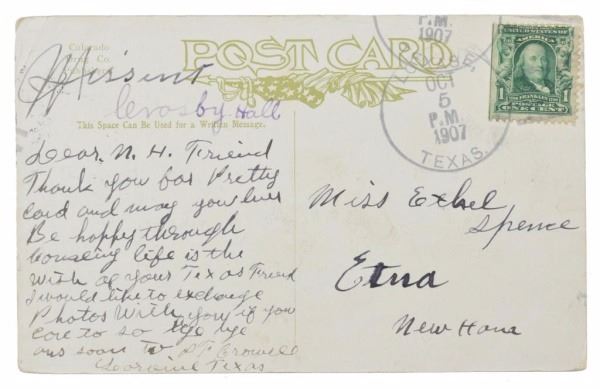 Colorado
Drug Co.
POST CARD
This Space Can Be Used for a Written Message.
Crosby Hall
Dear N. H. Friend
Thank you for Pretty
Card and may you
Be happy through
life is the
Wish of your Texas Friend
I would like to exchange
Photos With you if you
care to so
ans soon to Crowell
Loraine Texas
P.M.
1907
OCT
5
P.M.
1907
TEXAS.
1
POSTAGE
ONE CENT
Miss Ethel
Spence
Etna
New Hans